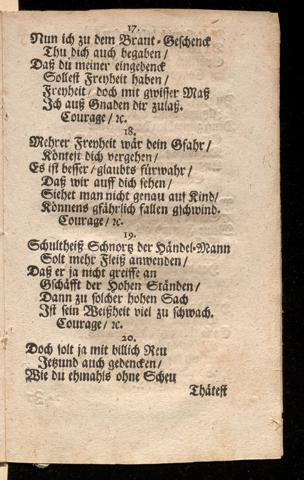 17.
Nun ich zu dem Braut-Geschenck
Thu dich auch begaben/
Daß du meiner eingedenck
Sollest Freyheit haben/
Freyheit/ doch mit gwisser Maß
Ich auß Gnaden dir zulaß.
Courage/ ꝛc.
18.
Mehrer Freyheit wär dein Gfahr/
Köntest dich vergehen/
Es ist besser/ glaubts fürwahr/
Daß wir auff dich sehen/
Siehet man nicht genau auf Kind/
Könnens gfährlich fallen gschwind.
Courage/ ꝛc.
19.
Schultheiß Schnortz der Händel-Mann
Solt mehr Fleiß anwenden/
Daß er ja nicht greiffe an
Gschäfft der Hohen Ständen/
Dann zu solcher hohen Sach
Ist sein Weißheit viel zu schwach.
Courage/ ꝛc.
20.
Doch solt ja mit billich Reu
Jetzund auch gedencken/
Wie du ehmahls ohne Scheu
Thätest